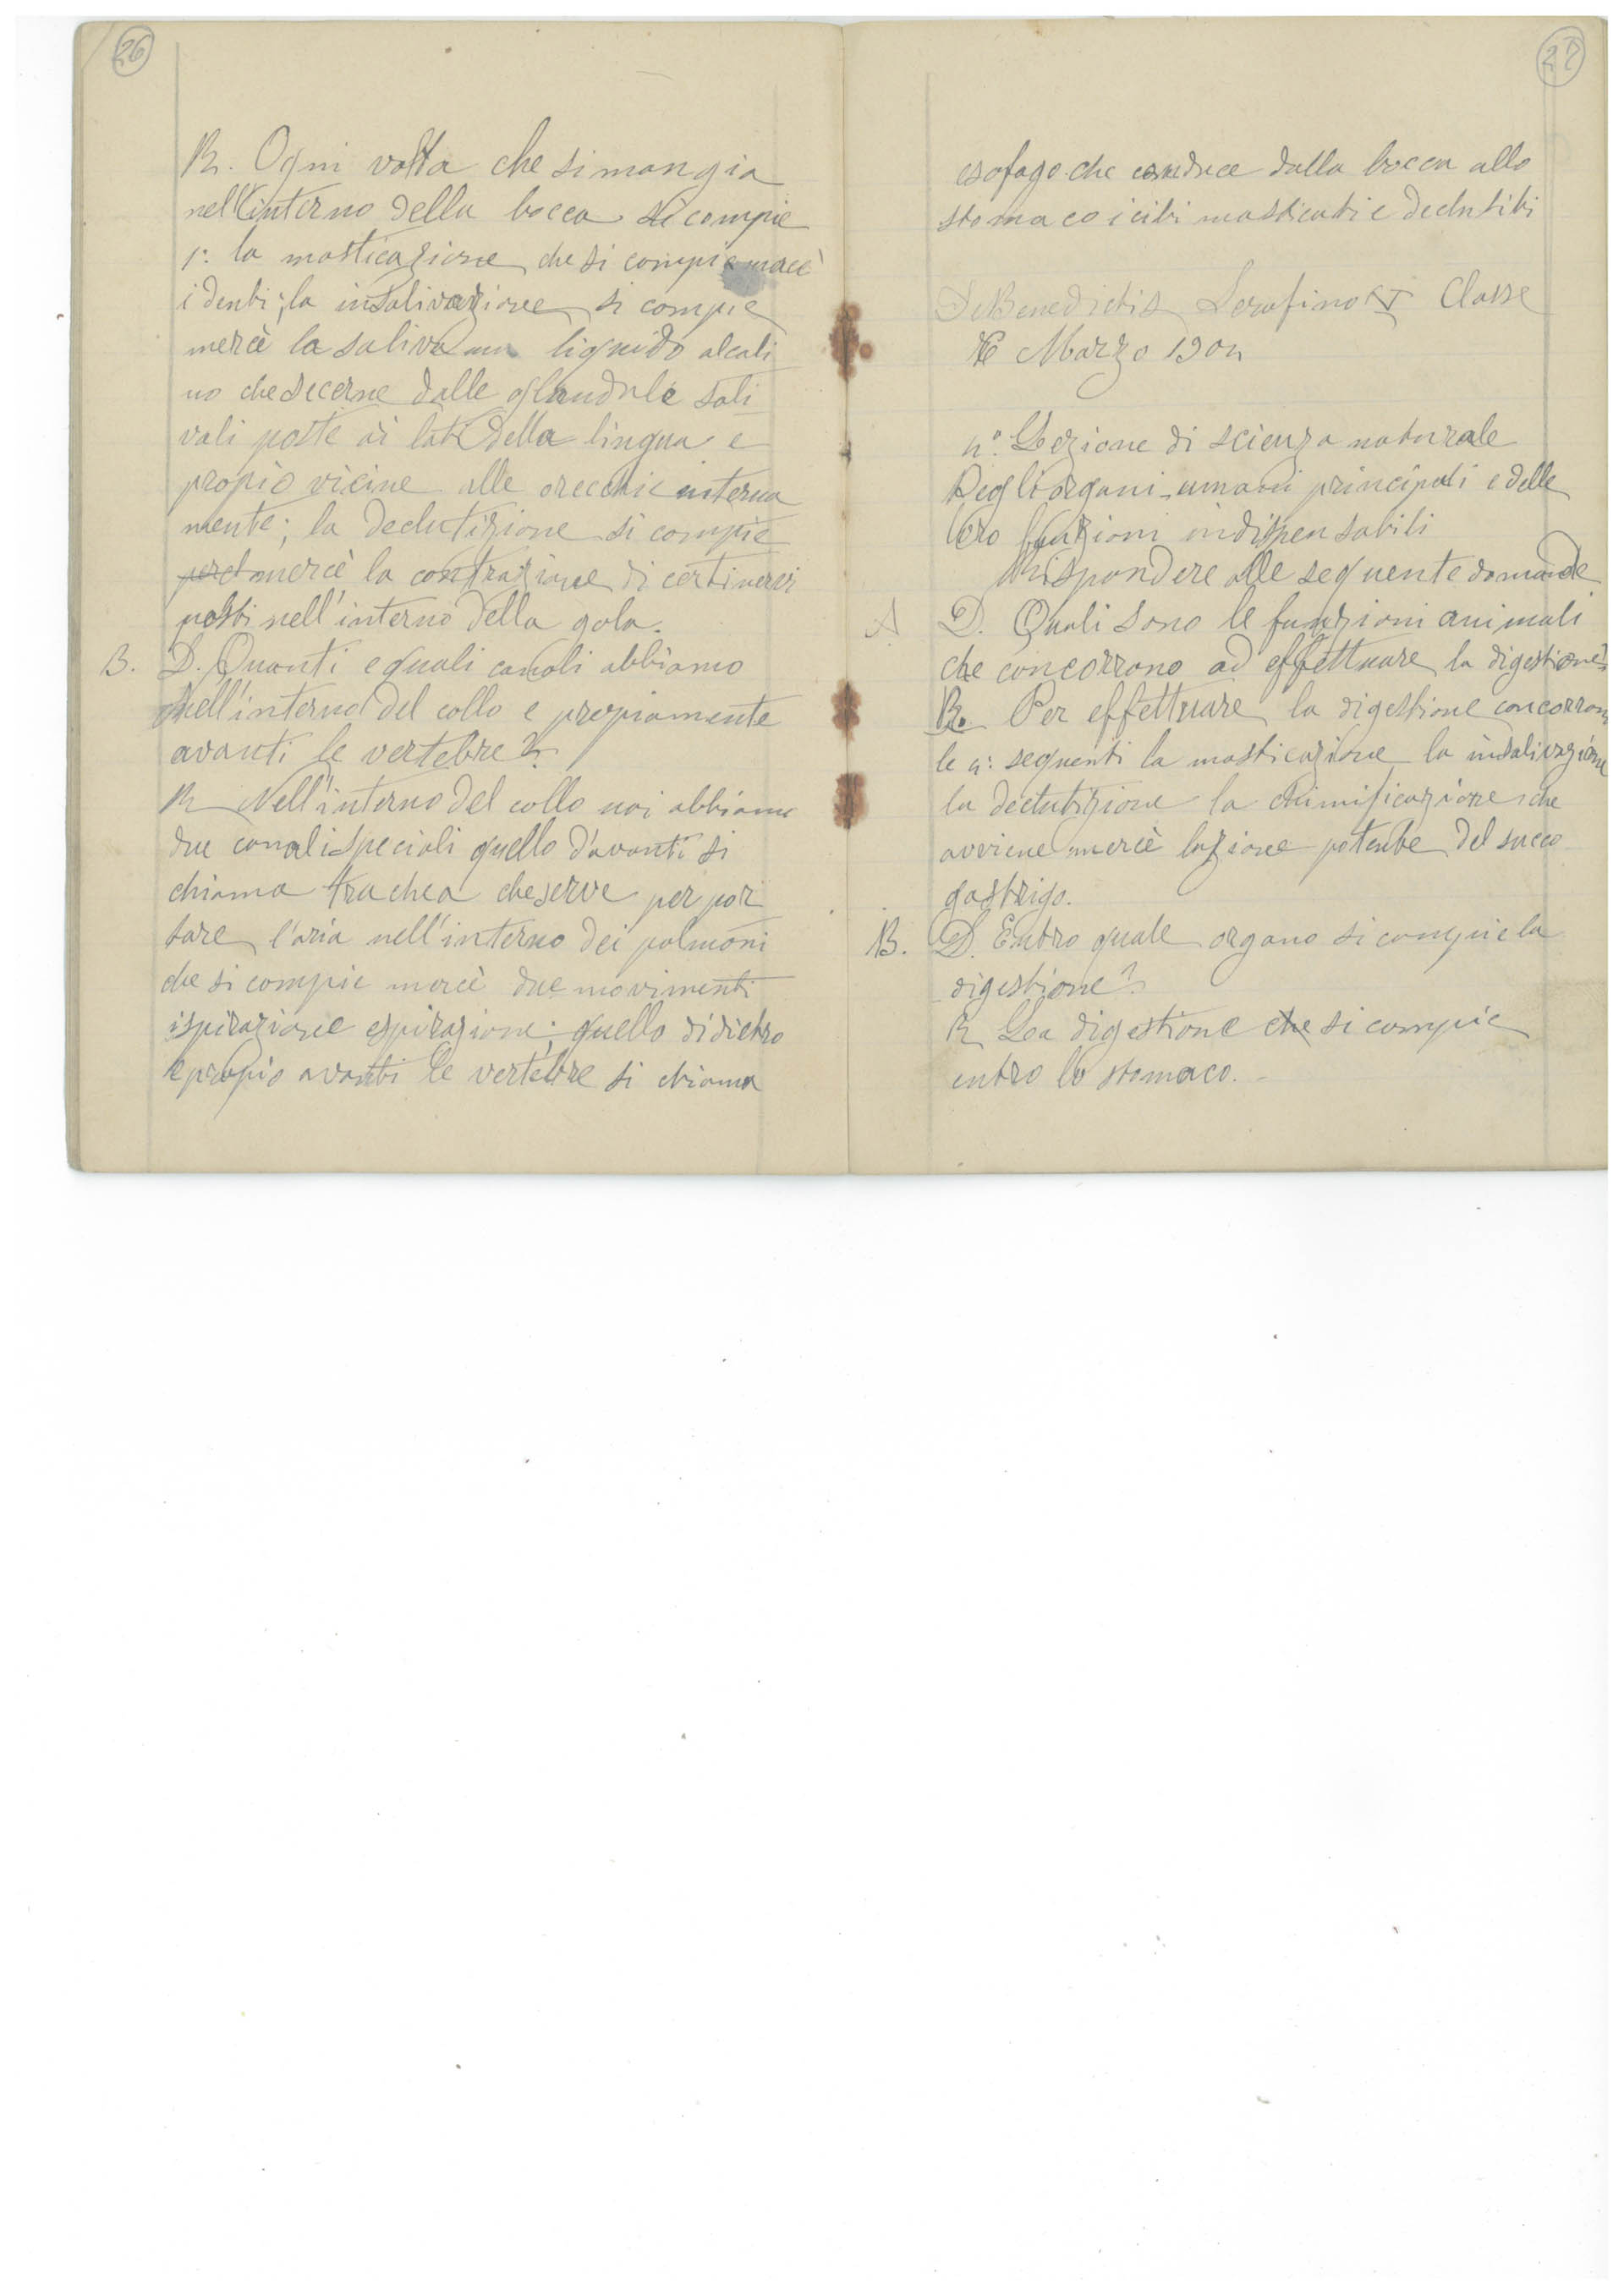 26
R. Ogni volta che si mangia
nell'interno della bocca si compie
1: la masticazione che si compie mercè
i denti; la insalivazione si compie
mercè la saliva un liquido alcali
no che secerne dalle glandule sali
vali poste ai lati della lingua e
propio vicine alle orecchie interna
mente; la declutizione si compie
mercè la contrazione di certi nervi
posti nell'interno della gola.
B. D. Quanti e quali canali abbiamo
nell'interno del collo e propiamente
avanti le vertebre?
R Nell'interno del collo noi abbiamo
due canali speciali quello d'avanti si
chiama trachea che serve per por
tare l'aria nell'interno dei polmoni
che si compie mercè due movimenti
ispirazione espirazione; quello di dietro
e propio avanti le vertebre si chiama
27
esofago che conduce dalla bocca allo
stomaco i cibi masticati e declutiti
De Benedictis Serafino V Classe
Marzo 1904
4° Lezione di scienza naturale
Degli organi umani principali e delle
loro funzioni indispensabili
Rispondere alle sequente domande
A D. Quali sono le funzioni animali
che concorrono ad effettuare la digestione?
R. Per effettuare la digestione concorrono
le 4: sequenti la masticazione la insalivazione
la declutizione la chimificazione che
avviene mercè lazione potente del succo
gastrigo.
B. D. Entro quale organo si compie la
digestione?
R La digestione che si compie
entro lo stomaco.